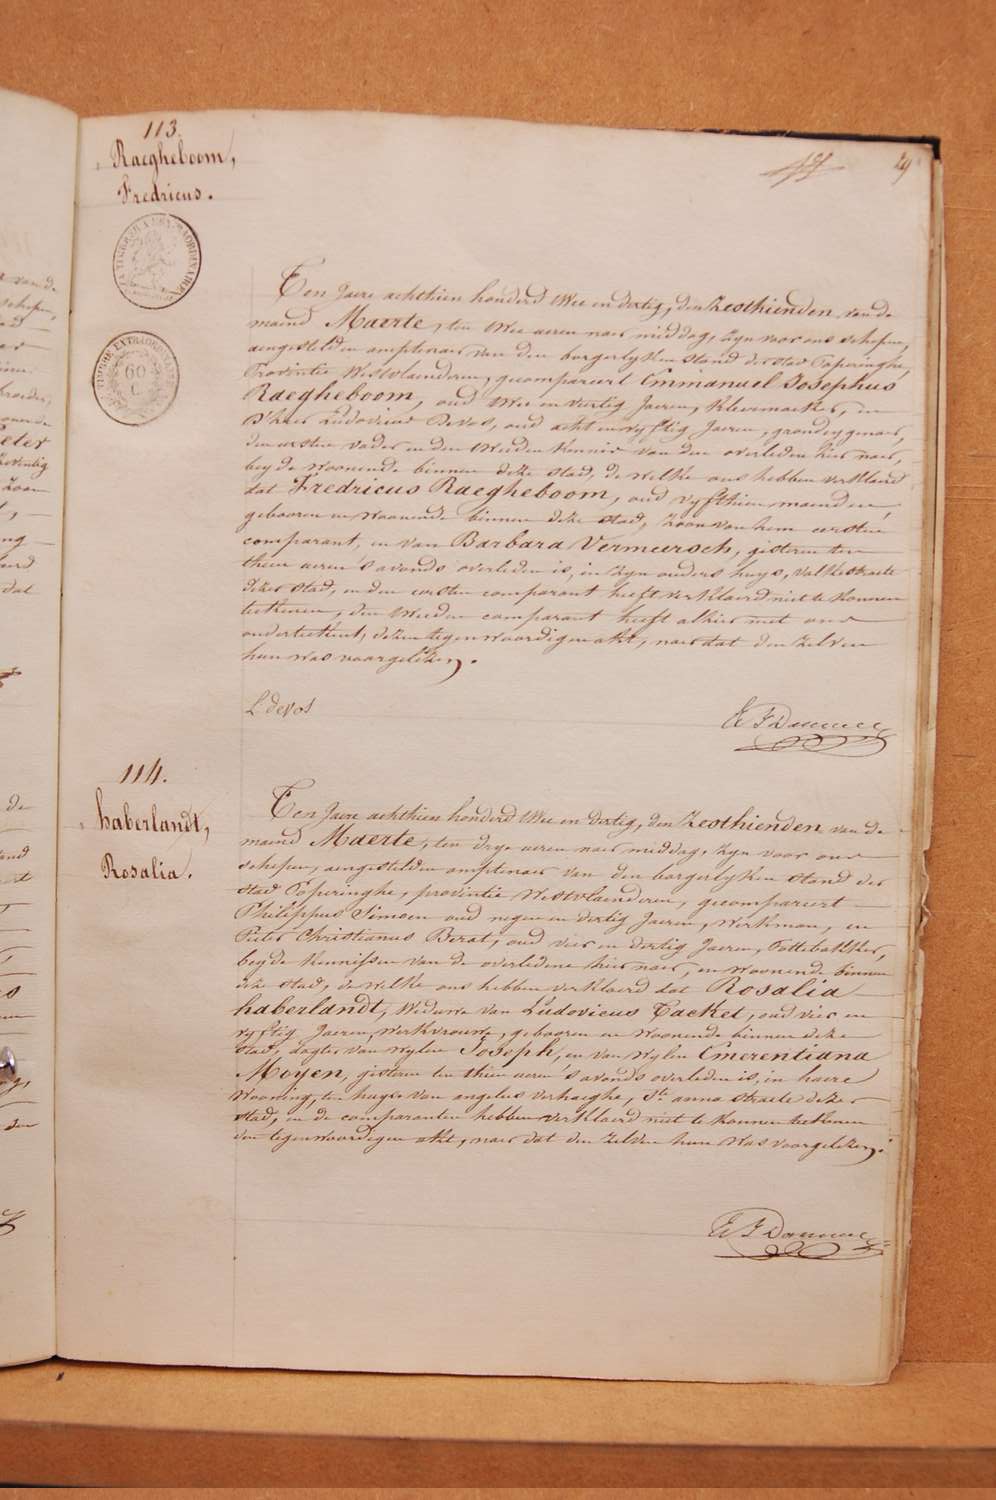 113.
Raegheboom,
Fredricus.
29
TIMBRE EXTRAORDINAIRE
60
C
Een Jaere achthien honderd twee en dertig, den Zesthienden van de
maend Maerte, ten twee ueren naer middag, zyn voor ons schepen,
aengestelden amptenaer van den borgerlyken stand der stad Poperinghe,
Provintie Westvlaenderen, gecompareert Emmanuel Josephus
Raegheboom, oud twee en viertig Jaeren, Kleermaeker, en
D'heer Ludovicus Devos, oud acht en vyftig Jaeren, grondeygenaer,
den eersten vader en den tweeden Kennis van den overleden hier naer,
beyde woonende binnen deze stad, de welke ons hebben verklaerd
dat Fredricus Raegheboom, oud vyfthien maenden,
gebooren en woonende binnen deze stad, zoon van hem eersten
comparant, en van Barbara Vermeersch, gisteren ten
thien ueren 's avonds overleden is, in zyn ouders huys, Valkestraete
dezer stad, en den eersten comparant heeft verklaerd niet te konnen
teekenen, den tweeden comparant heeft alhier met ons
onderteekent, dezen tegenwoordigen akt, naer dat den zelven
hun was voorgelezen.
L devos
114.
haberlandt,
Rosalia.
Een Jaere achthien honderd twee en dertig, den Zesthienden van de
maend Maerte, ten drye ueren naer middag, zyn voor ons
schepen, aengestelden amptenaer van den borgerlyken stand der
stad Poperinghe, provintie Westvlaenderen, gecompareert
Philippus Simoen oud negen en dertig Jaeren, werkman, en
Pieter Christianus Berat, oud vier en dertig Jaeren, Pottebakker,
beyde Kennissen van de overledene hier naer, en woonende binnen
deze stad, de welke ons hebben verklaerd dat Rosalia
haberlandt, weduwe van Ludovicus Tacket, oud vier en
vyftig Jaeren, werkvrouwe, gebooren en woonende binnen deze
stad, dogter van wylen Joseph, en van wylen Emerentiana
Moyen, gisteren ten thien ueren 's avonds overleden is, in haere
wooning, ten huyse van angelus verhaeghe, St. anna straete dezer
stad, en de comparanten hebben verklaerd niet te konnen teekenen
den tegenwoordigen akt, naer dat den zelven hun was voorgelezen.